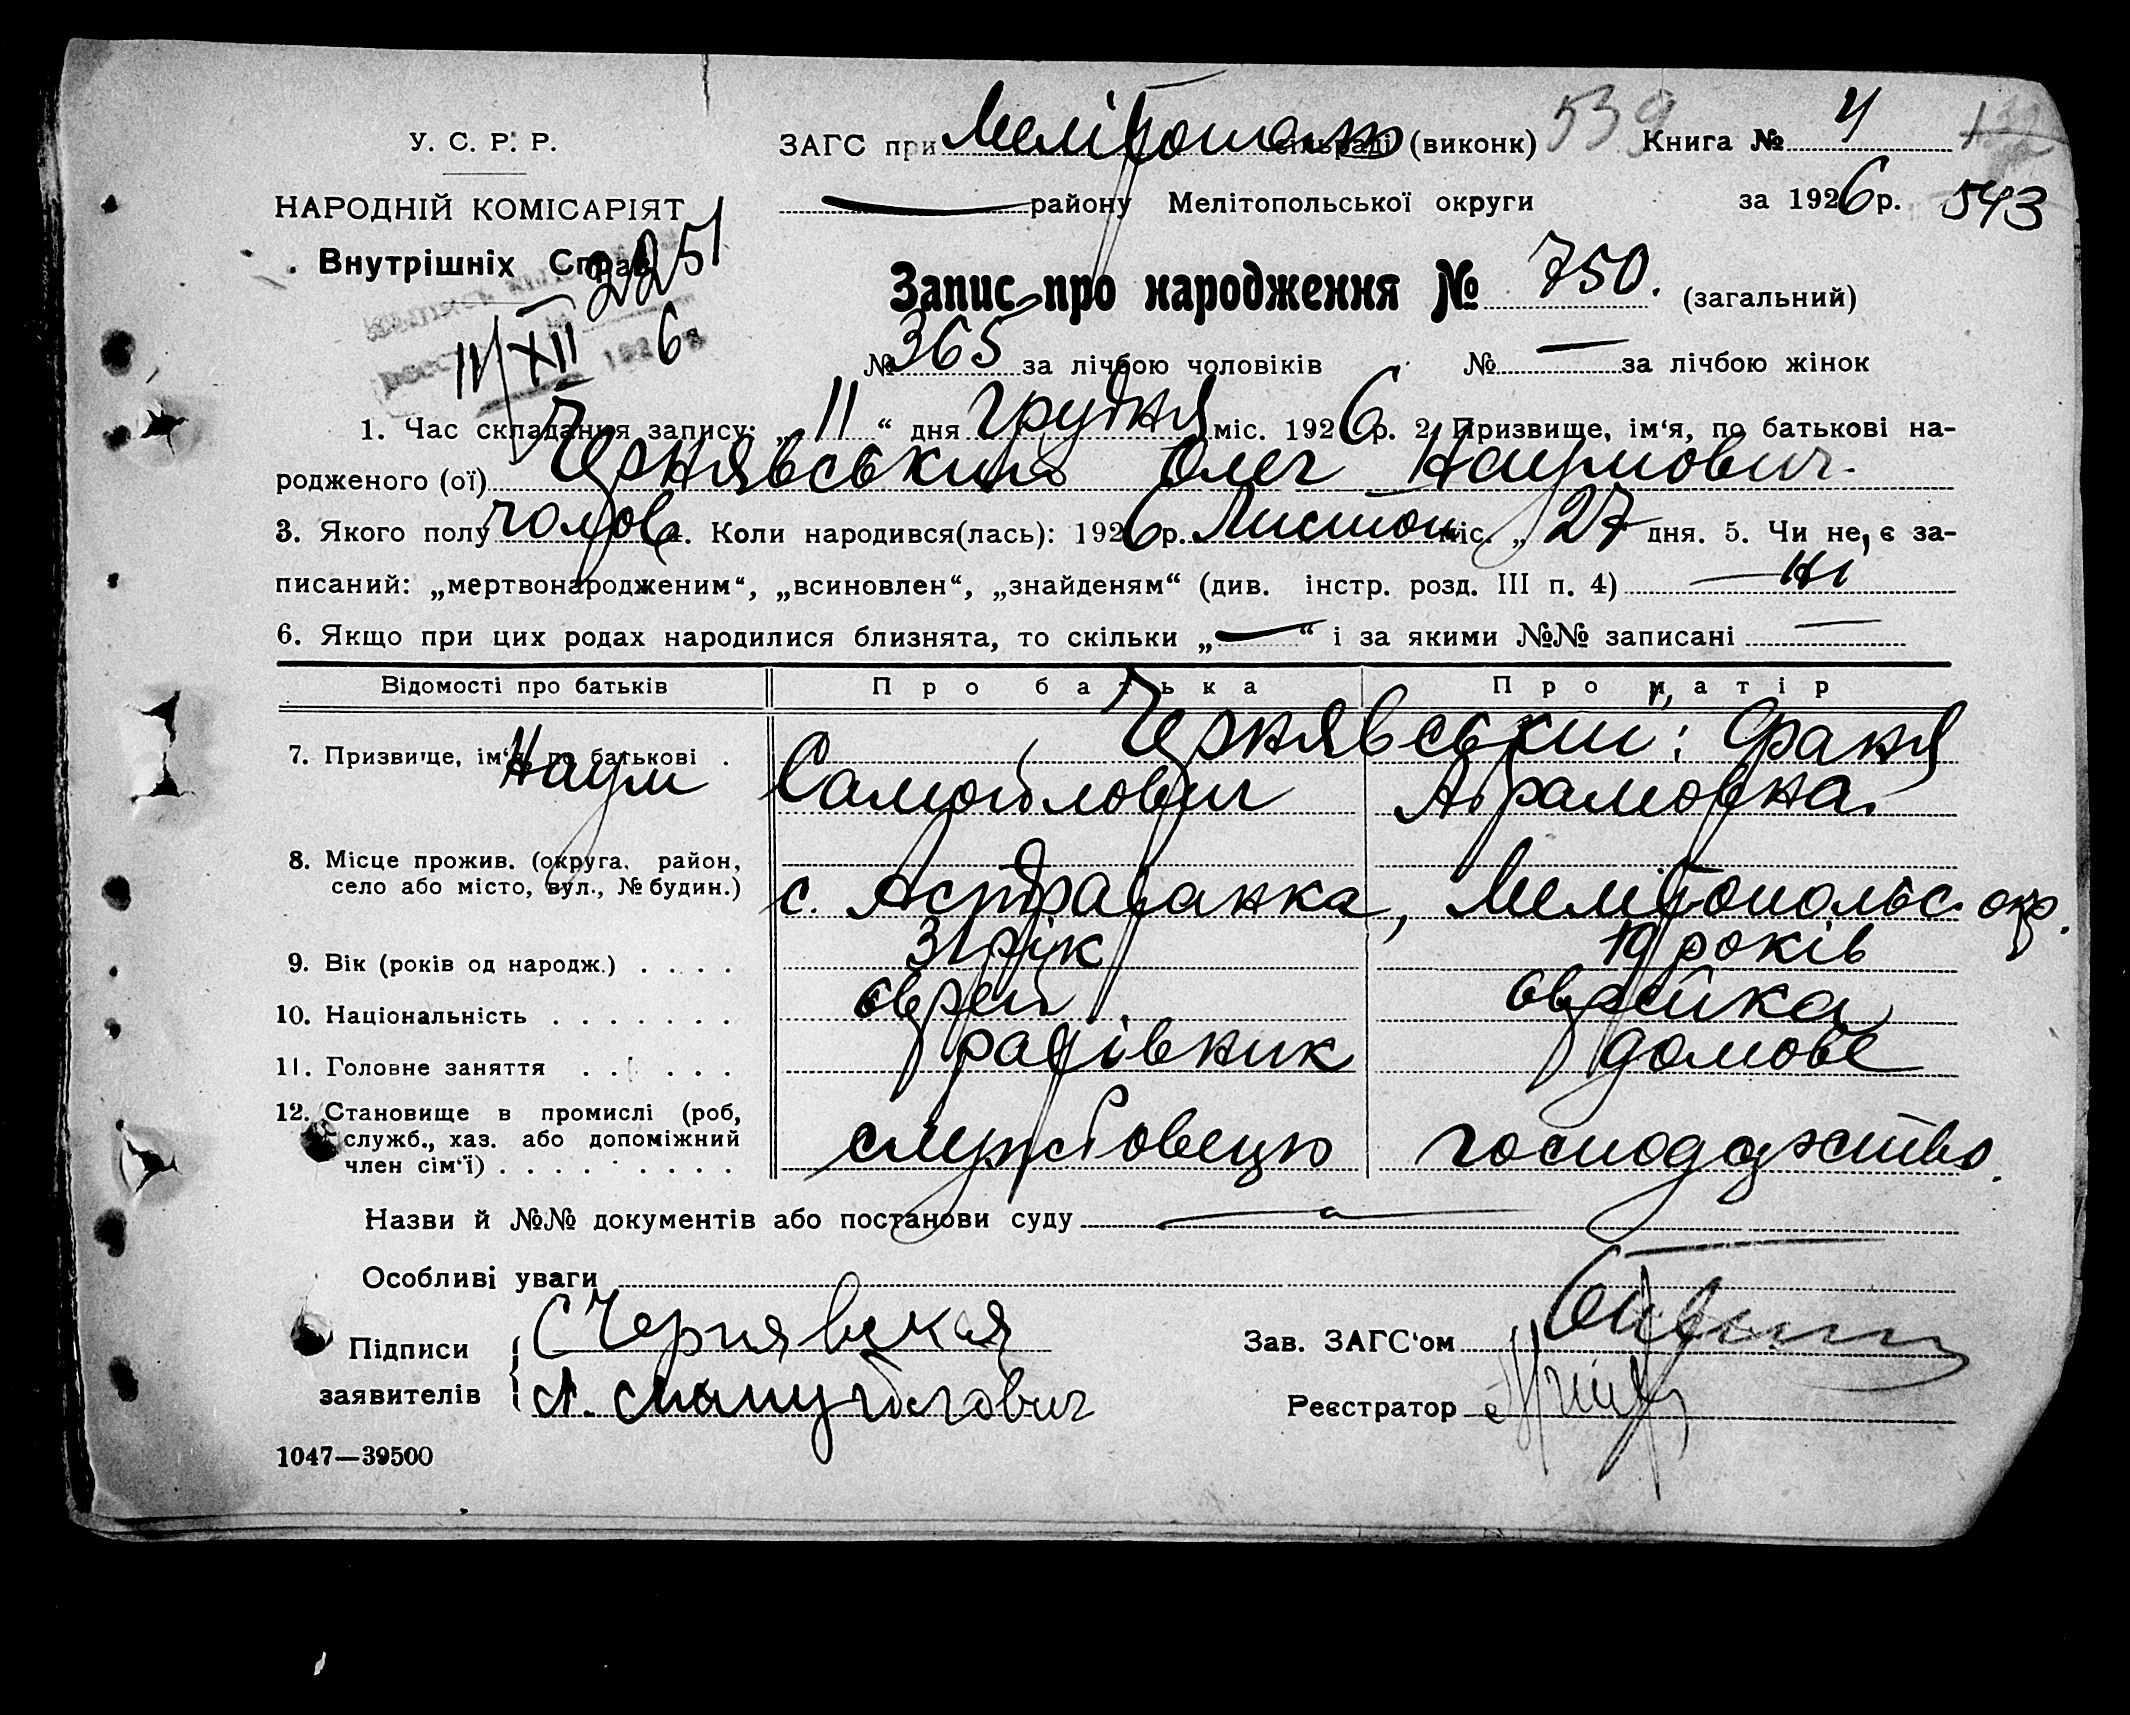 У. С. Р. Р.
НАРОДНІЙ КОМІСАРІЯТ
Внутрішніх Справ
2251
11/XII 1926
ЗАГС при Мелітопол сільраді (виконк) 539 Книга № 4
району Мелітопольської округи за 1926 р. 543
Запис про народження № 750. (загальний)
№ 365 за лічбою чоловіків № — за лічбою жінок
1. Час складання запису: „ 11 “ дня Грудня міс. 1926 р. 2. Призвище, ім‘я, по батькові на-
родженого (ої) Чернявський Олег Наумович.
3. Якого полу чолов 4. Коли народився(лась): 1926 р. Листоп міс. „ 27 дня. 5. Чи не є за-
писаний: „мертвонародженим“, „всиновлен“, „знайденям“ (див. інстр. розд. III п. 4) — Ні
6. Якщо при цих родах народилися близнята, то скільки „ — “ і за якими №№ записані —
Відомості про батьків Про батька Про матір
Чернявськи : Фаня
7. Призвище, ім‘я, по батькові . Наум Самойлович Абрамовна.
8. Місце прожив. (округа, район,
село або місто, вул., № будин.) с. Астраханка, Мелітопольс. окр.
9. Вік (років од народж.) . . . . 31 рік 19 років
10. Національність . . . . . . . єврей єврейка
11. Головне заняття . . . . . . рахівник домове
12. Становище в промислі (роб,
служб., хаз. або допоміжний
член сім‘ї) . . . . . . . . . службовець господарство.
Назви й №№ документів або постанови суду —
Особливі уваги
Підписи Чернявская Зав. ЗАГС‘ом
заявителів Реєстратор
1047—39500